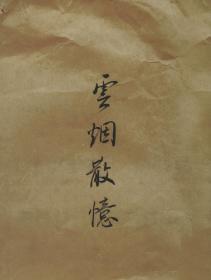 雲烟散憶